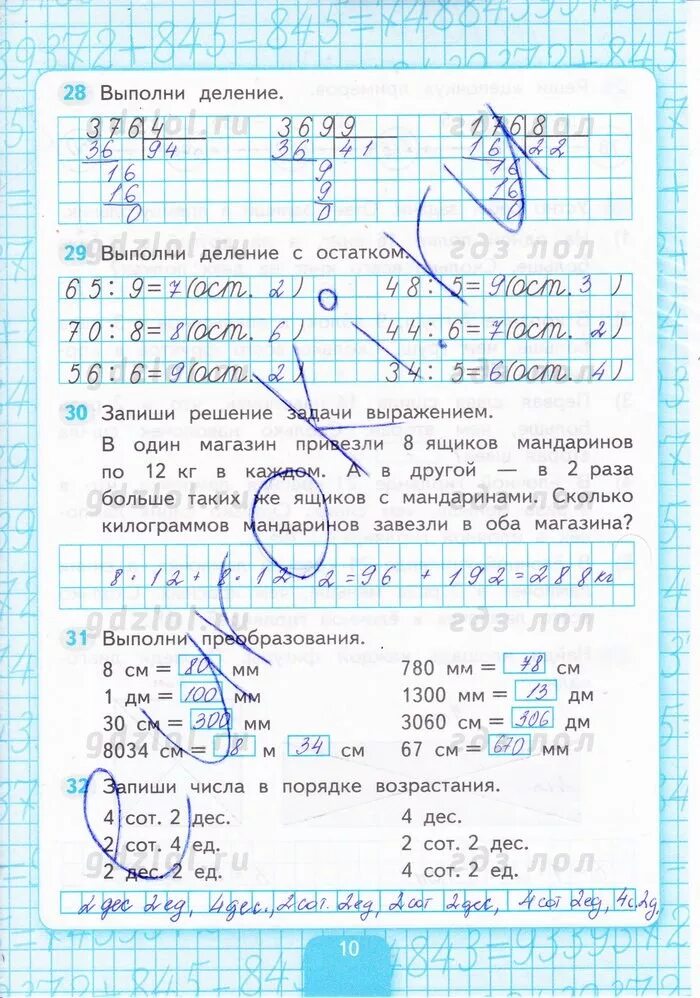 28 Выполни деление.
376 4 369 9 176 8
36 94 36 41 16 22
16 9 16
16 9 16
0 0 0
29 Выполни деление с остатком.
65 : 9 = 7 (ост. 2) 48 : 5 = 9 (ост. 3)
70 : 8 = 8 (ост. 6) 44 : 6 = 7 (ост. 2)
56 : 6 = 9 (ост. 2) 34 : 5 = 6 (ост. 4)
30 Запиши решение задачи выражением.
В один магазин привезли 8 ящиков мандаринов
по 12 кг в каждом. А в другой — в 2 раза
больше таких же ящиков с мандаринами. Сколько
килограммов мандаринов завезли в оба магазина?
8 · 12 + 8 · 12 · 2 = 96 + 192 = 288 кг
31 Выполни преобразования.
8 см = 80 мм 780 мм = 78 см
1 дм = 100 мм 1300 мм = 13 дм
30 см = 300 мм 3060 см = 306 дм
8034 см = 8 м 34 см 67 см = 670 мм
32 Запиши числа в порядке возрастания.
4 сот. 2 дес. 4 дес.
2 сот. 4 ед. 2 сот. 2 дес.
2 дес. 2 ед. 4 сот. 2 ед.
2 дес 2 ед, 4 дес., 2 сот. 2 ед, 2 сот 2 дес, 4 сот 2 ед, 4 с. 2 д.
10
gdzlol.ru гдз лол